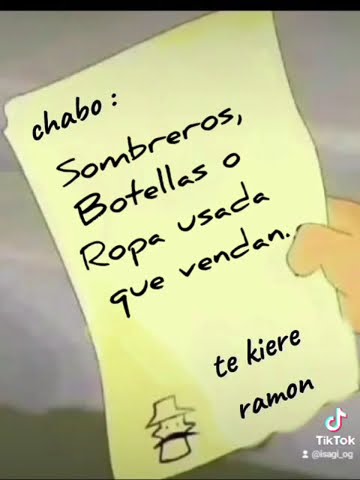 chabo :
Sombreros,
Botellas o
Ropa usada
que vendan.
te kiere
ramon
TikTok
@isagi_og